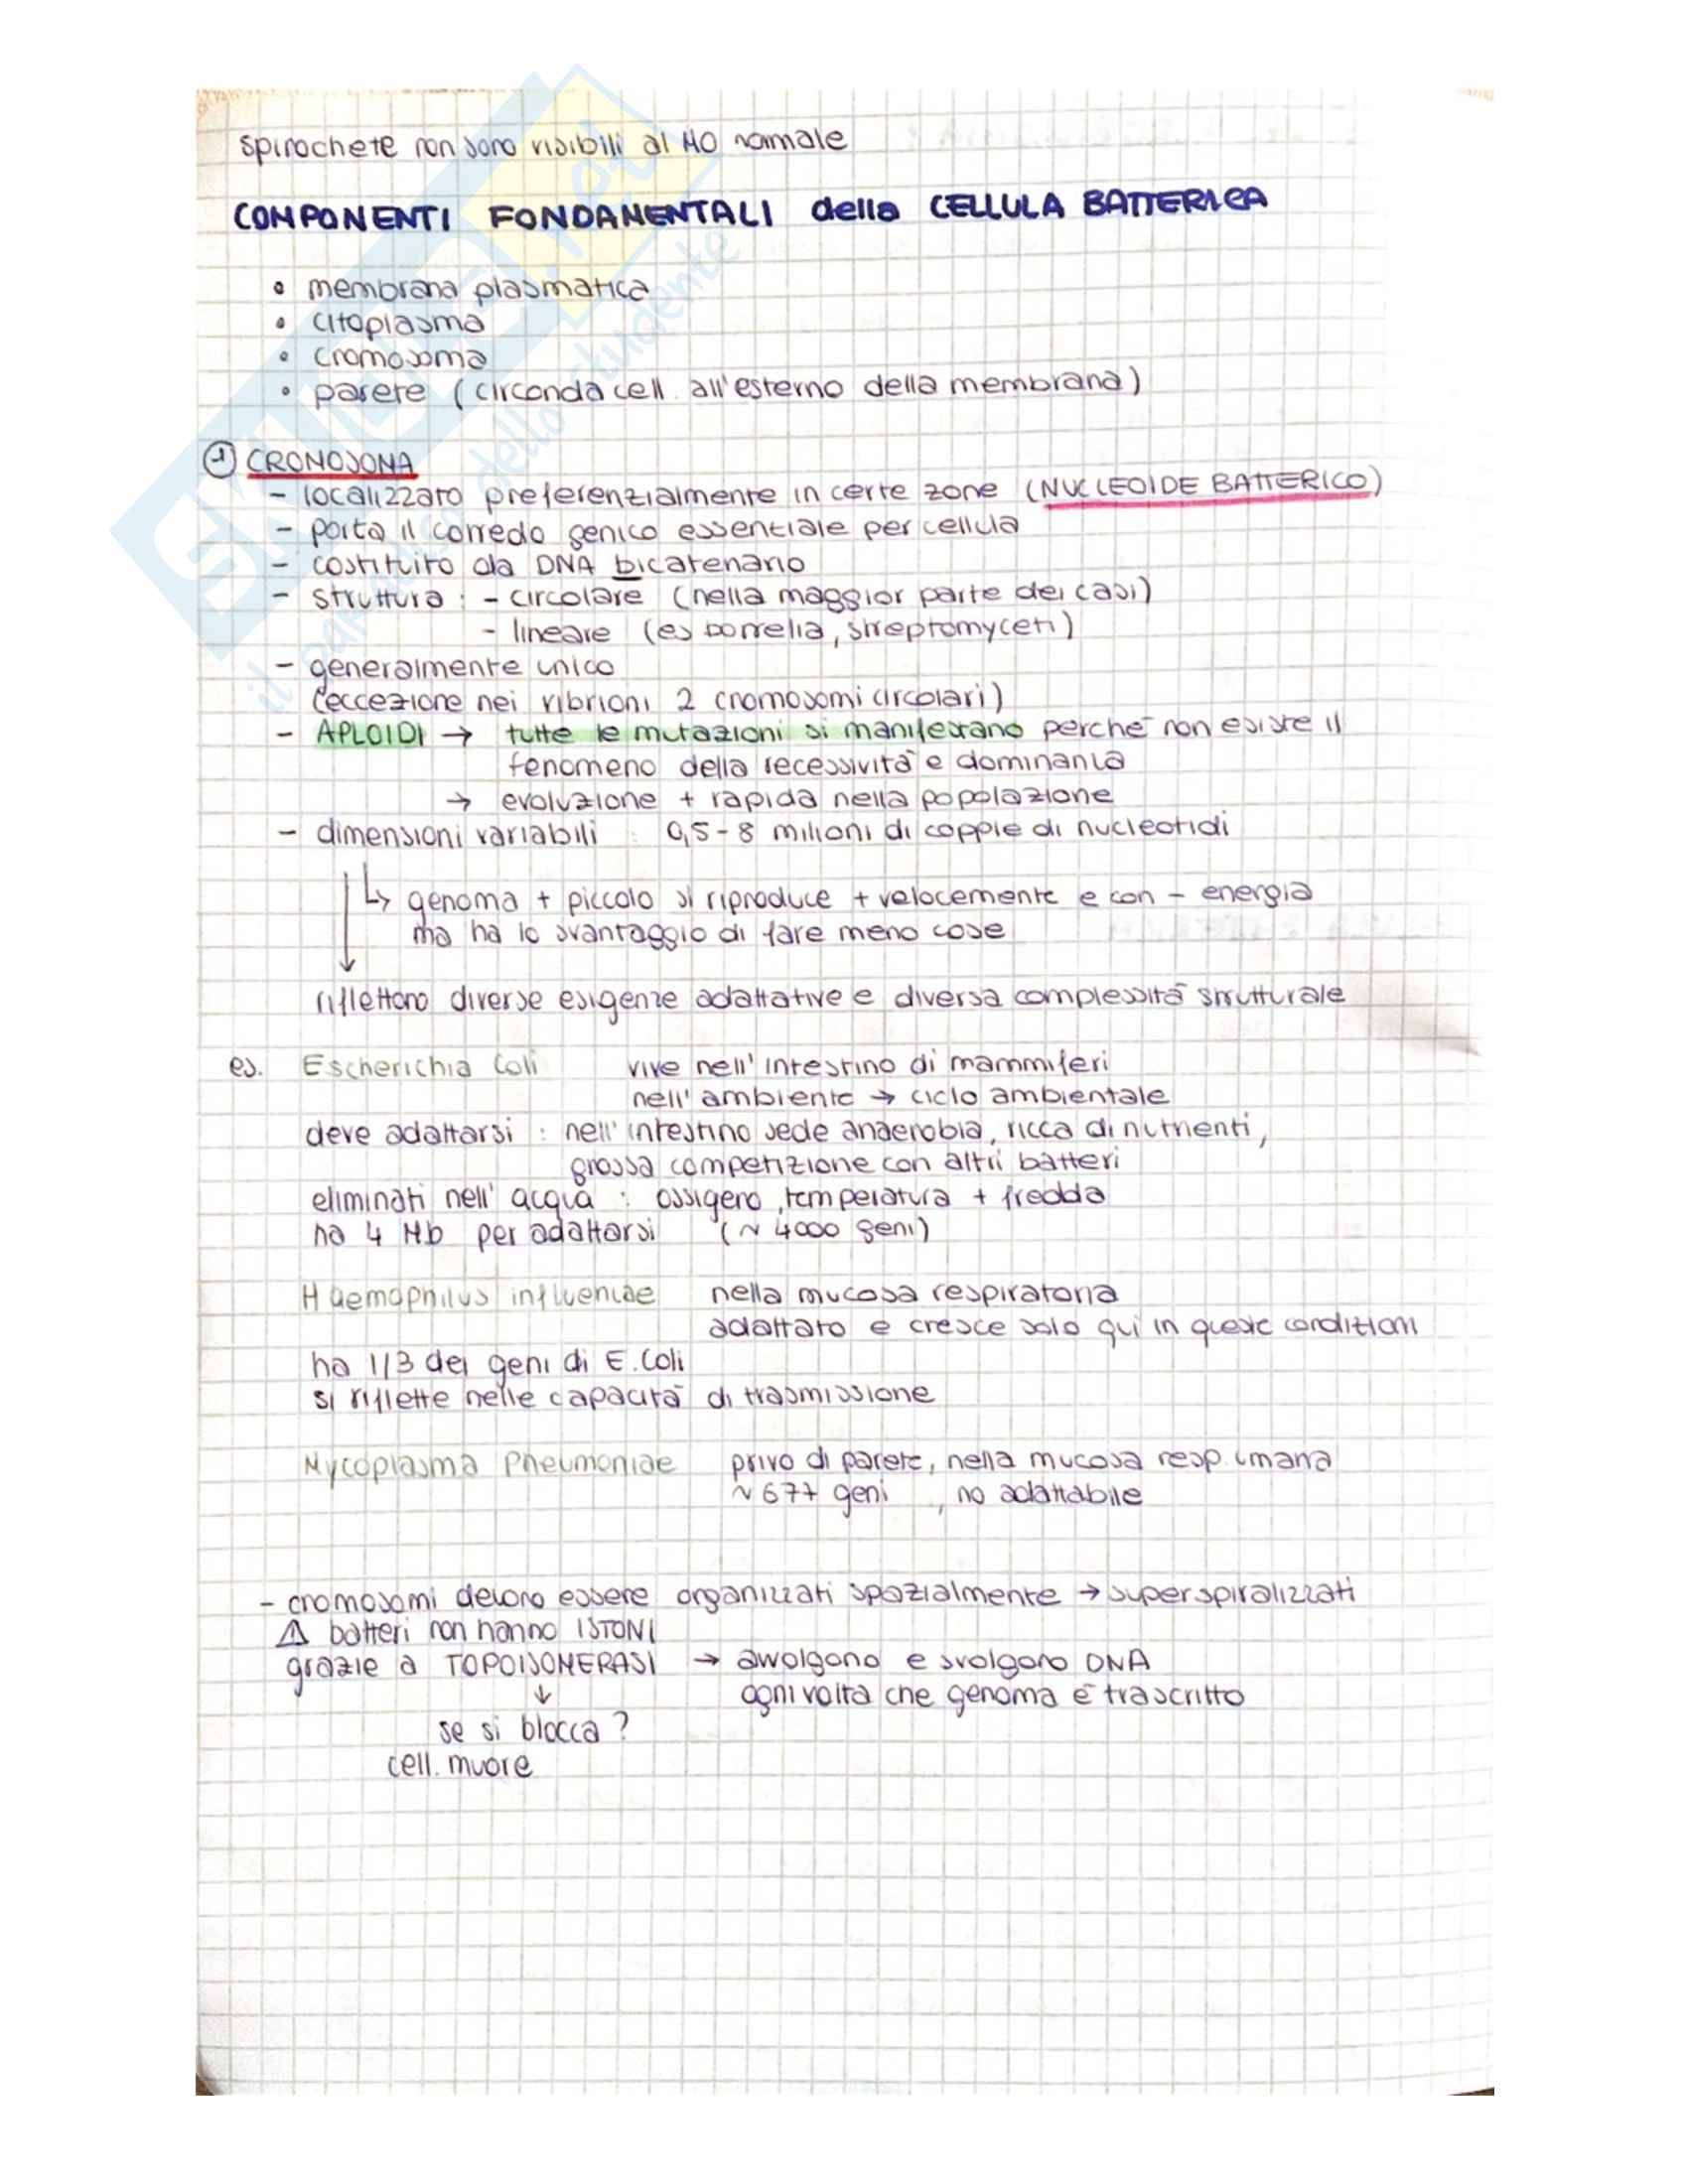 spirochete non sono visibili al MO normale
COMPONENTI FONDAMENTALI della CELLULA BATTERICA
• membrana plasmatica
• citoplasma
• cromosoma
• parete (circonda cell. all'esterno della membrana)
① CROMOSOMA
- localizzato preferenzialmente in certe zone (NUCLEOIDE BATTERICO)
- porta il corredo genico essenziale per cellula
- costituito da DNA bicatenario
- struttura : - circolare (nella maggior parte dei casi)
- lineare (es borrelia, streptomyceti)
- generalmente unico
(eccezione nei vibrioni 2 cromosomi circolari)
- APLOIDI → tutte le mutazioni si manifestano perché non esiste il
fenomeno della recessività e dominanza
→ evoluzione + rapida nella popolazione
- dimensioni variabili : 0,5-8 milioni di coppie di nucleotidi
↳ genoma + piccolo si riproduce + velocemente e con - energia
ma ha lo svantaggio di fare meno cose
↓
riflettono diverse esigenze adattative e diversa complessità strutturale
es. Escherichia Coli vive nell'intestino di mammiferi
nell'ambiente → ciclo ambientale
deve adattarsi : nell'intestino sede anaerobia, ricca di nutrienti,
grossa competizione con altri batteri
eliminati nell'acqua : ossigeno, temperatura + fredda
ha 4 Mb per adattarsi (~ 4000 geni)
Haemophilus influenzae nella mucosa respiratoria
adattato e cresce solo qui in queste condizioni
ha 1/3 dei geni di E. Coli
si riflette nelle capacità di trasmissione
Mycoplasma Pneumoniae privo di parete, nella mucosa resp. umana
~ 677 geni , no adattabile
- cromosomi devono essere organizzati spazialmente → superspiralizzati
⚠ batteri non hanno ISTONI
grazie a TOPOISOMERASI → avvolgono e svolgono DNA
↓ ogni volta che genoma è trascritto
se si blocca ?
cell. muore